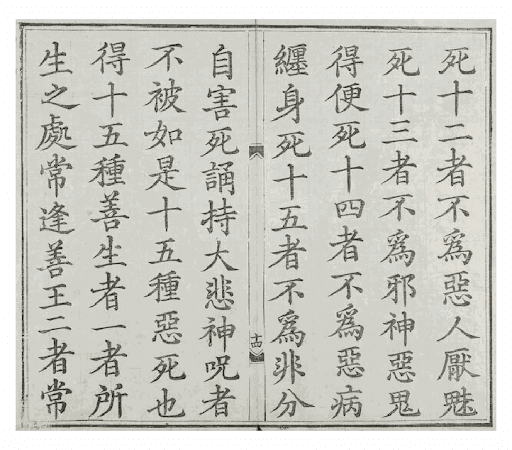 死十二者不為惡人厭魅
死十三者不為邪神惡鬼
得便死十四者不為惡病
纏身死十五者不為非分
十四
自害死誦持大悲神呪者
不被如是十五種惡死也
得十五種善生者一者所
生之處常逢善王二者常